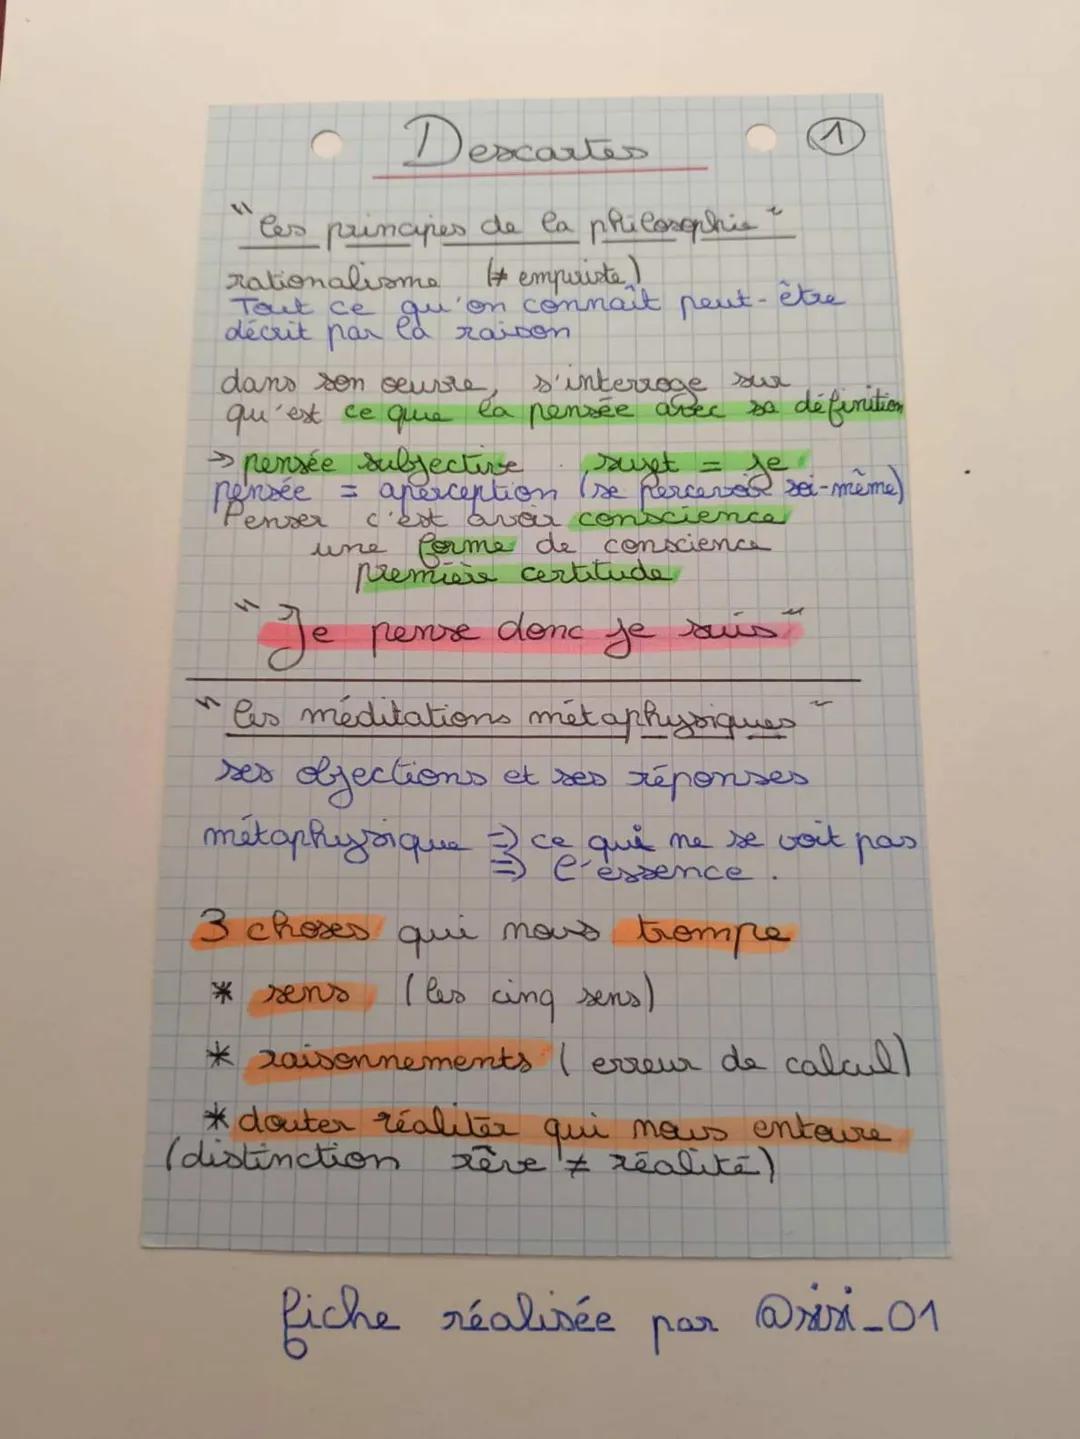 Descartes
1
"les principes de la philosophie"
rationalisme (≠ empiriste)
Tout ce qu'on connaît peut-être
décrit par la raison
dans son oeuvre, s'interroge sur
qu'est ce que la pensée avec sa définition
→ pensée subjective . sujet = je
pensée = aperception (se percevoir soi-même)
Penser c'est avoir conscience
une forme de conscience
première certitude
"Je pense donc je suis"
"les méditations métaphysiques"
ses objections et ses réponses
métaphysique => ce qui ne se voit pas
=> l'essence.
3 choses qui nous trompe
* sens (les cinq sens)
* raisonnements (erreur de calcul)
* douter réalitér qui nous entoure
(distinction rêve ≠ réalité)
fiche réalisée par @sisi_01